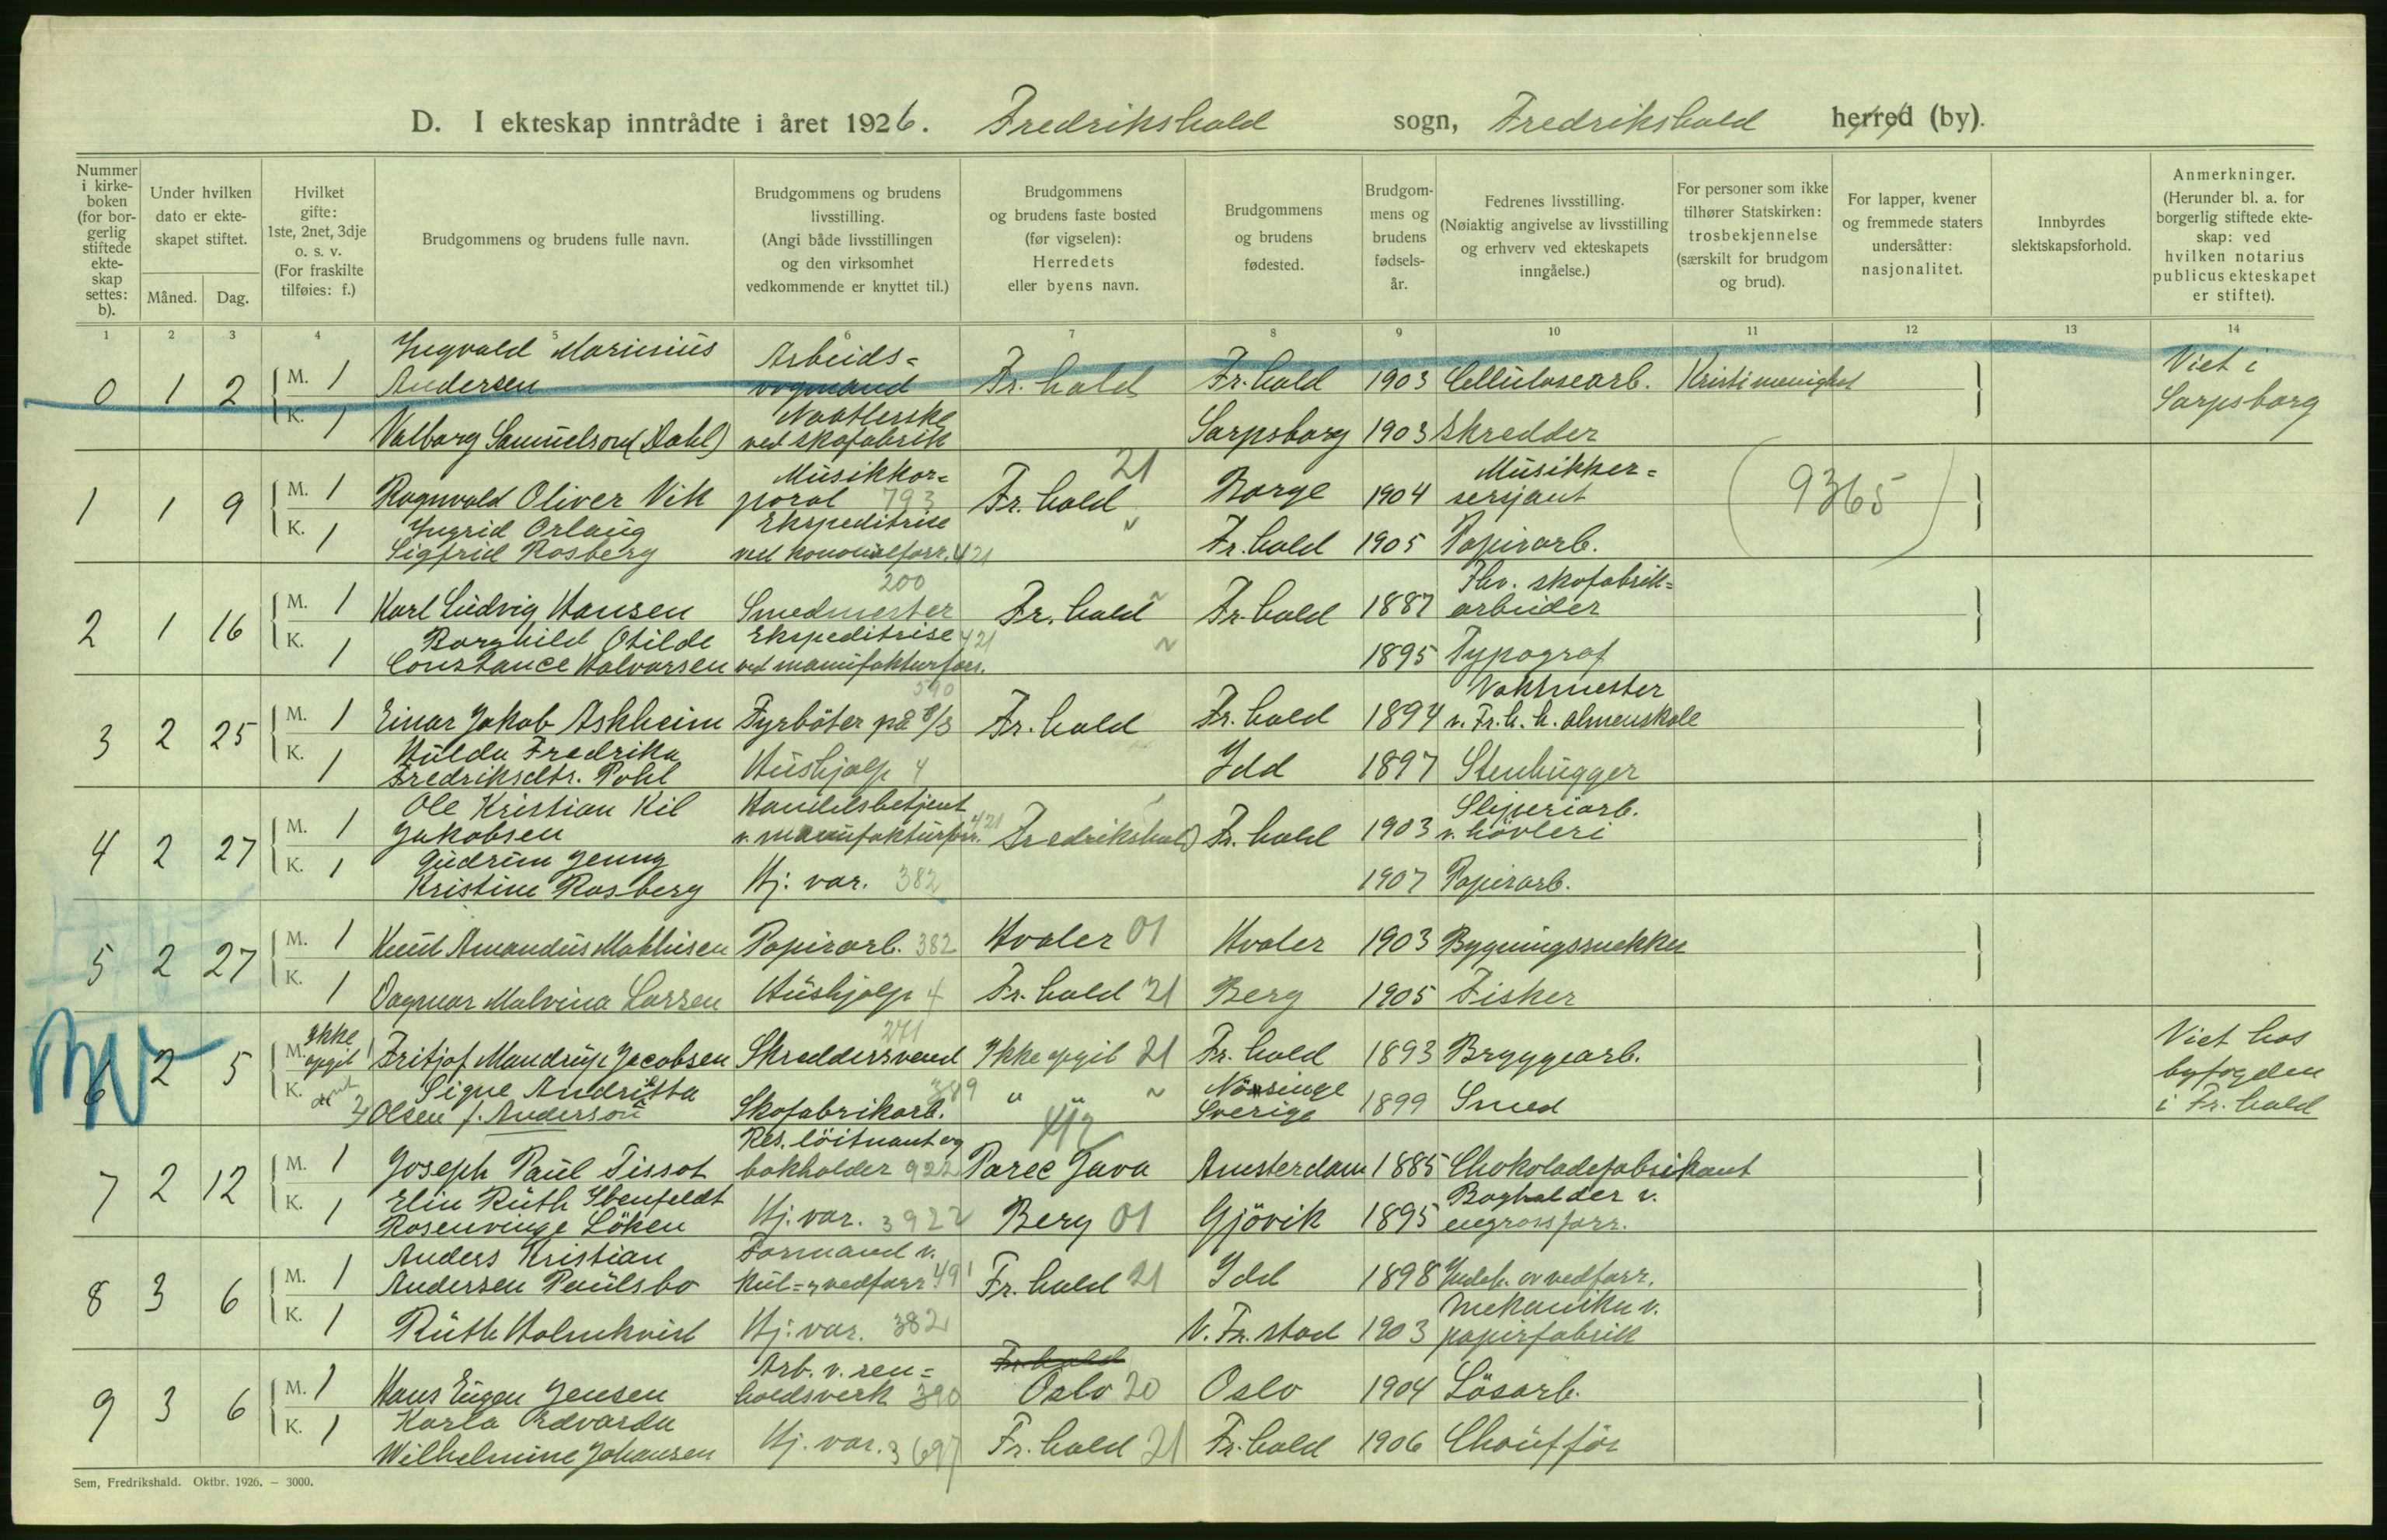 D. I ekteskap inntrådte i året 1926. Fredrikshald sogn, Fredrikshald herred (by).
Nummer i kirkeboken (for borgerlig stiftede ekteskap settes: b).
Under hvilken dato er ekteskapet stiftet.
Måned. Dag.
Hvilket gifte: 1ste, 2net, 3dje o. s. v. (For fraskilte tilføies: f.)
Brudgommens og brudens fulle navn.
Brudgommens og brudens livsstilling. (Angi både livsstillingen og den virksomhet vedkommende er knyttet til.)
Brudgommens og brudens faste bosted (før vigselen): Herredets eller byens navn.
Brudgommens og brudens fødested.
Brudgommens og brudens fødselsår.
Fedrenes livsstilling. (Nøiaktig angivelse av livsstilling og erhverv ved ekteskapets inngåelse.)
For personer som ikke tilhører Statskirken: trosbekjennelse (særskilt for brudgom og brud).
For lapper, kvener og fremmede staters undersåtter: nasjonalitet.
Innbyrdes slektskapsforhold.
Anmerkninger. (Herunder bl. a. for borgerlig stiftede ekteskap: ved hvilken notarius publicus ekteskapet er stiftet).
1 2 3 4 5 6 7 8 9 10 11 12 13 14
0 1 2 M. 1 Ingvald Marinius Andersen Arbeids=vognmand Fr. hald Fr. hald 1903 Cellulosearb. Kristi menighet Viet i Sarpsborg
K. 1 Valborg Samuelson (Dahl) Naatlerske ved skofabrik Sarpsborg 1903 Skredder
1 1 9 M. 1 Ragnvald Oliver Vik Musikkor=poral 793 Fr. hald 21 Borge 1904 Musikker=sersjant (9365)
K. 1 Ingrid Orlaug Sigfrid Rosberg Ekspeditrise ved kolonialforr. 421 Fr. hald 1905 Papirarb.
2 1 16 M. 1 Karl Ludvig Hansen Smedmester 200 Fr. hald Fr. hald 1887 Fhv. skofabrik=arbeider
K. 1 Borghild Otilde Constance Halvorsen Ekspeditrise ved manufakturforr. 421 1895 Typograf
3 2 25 M. 1 Einar Jakob Askheim Fyrböter på D/S 590 Fr. hald Fr. hald 1894 Vaktmester v. Fr. h. h. almenskole
K. 1 Hulda Fredrika Fredriksdtr. Pohl Hushjælp 4 Idd 1897 Stenhugger
4 2 27 M. 1 Ole Kristian Kil Jakobsen Handelsbetjent v. manufakturforr. 421 Fredrikshald Fr. hald 1903 Sliperiarb. v. hövleri
K. 1 Gudrun Jenny Kristine Rosberg Hj. vær. 382 1907 Papirarb.
5 2 27 M. 1 Knut Amandus Mathisen Papirarb. 382 Hvaler 01 Hvaler 1903 Bygningssnekker
K. 1 Dagmar Malvina Larsen Hushjelp 4 Fr. hald 21 Berg 1905 Fisker
6 2 5 M. Ikke opgit 1 Fritjof Mandrup Jacobsen Skreddersvend 271 Ikke opgit 21 Fr. hald 1893 Bryggearb. Viet hos byfogden i Fr. hald
K. 2 Signe Andrietta Olsen f. Anderson Skofabrikarb. 389 " " Sverige 1899 Smed
7 2 12 M. 1 Joseph Paul Tissot Res. löitnant og bokholder 922 Paree Java Amsterdam 1885 Chokoladefabrikant
K. 1 Elin Ruth Ibenfeldt Rosenvinge Löken Hj. vær. 3922 Berg 01 Gjövik 1895 Bogholder v. engrosforr.
8 3 6 M. 1 Anders Kristian Andersen Paulsbo Formand v. kul= & vedforr 491 Fr. hald 21 Idd 1898 Indeh. av vedforr.
K. 1 Ruth Holmkvist Hj. vær. 382 V. Fr. stad 1903 Mekaniker v. papirfabrik
9 3 6 M. 1 Hans Eugen Jensen Arb. v. ren=holdsverk 390 Fr. hald Oslo 20 Oslo 1904 Lösarb.
K. 1 Karla Edvarda Wilhelmine Johansen Hj. vær. 3697 Fr. hald 21 Fr. hald 1906 Chaufför
Sem, Fredrikshald. Oktbr. 1926. – 3000.